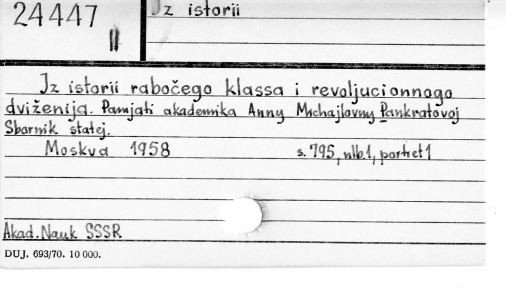 24447
II
Iz istorii
Iz istorii rabočego klassa i revoljucionnogo
dviženija. Pamjati akademika Anny Michajlovny Pankratovoj
Sbornik statej.
Moskva 1958 s. 795, nlb.1, portret 1
Akad. Nauk SSSR
DUJ. 693/70. 10 000.